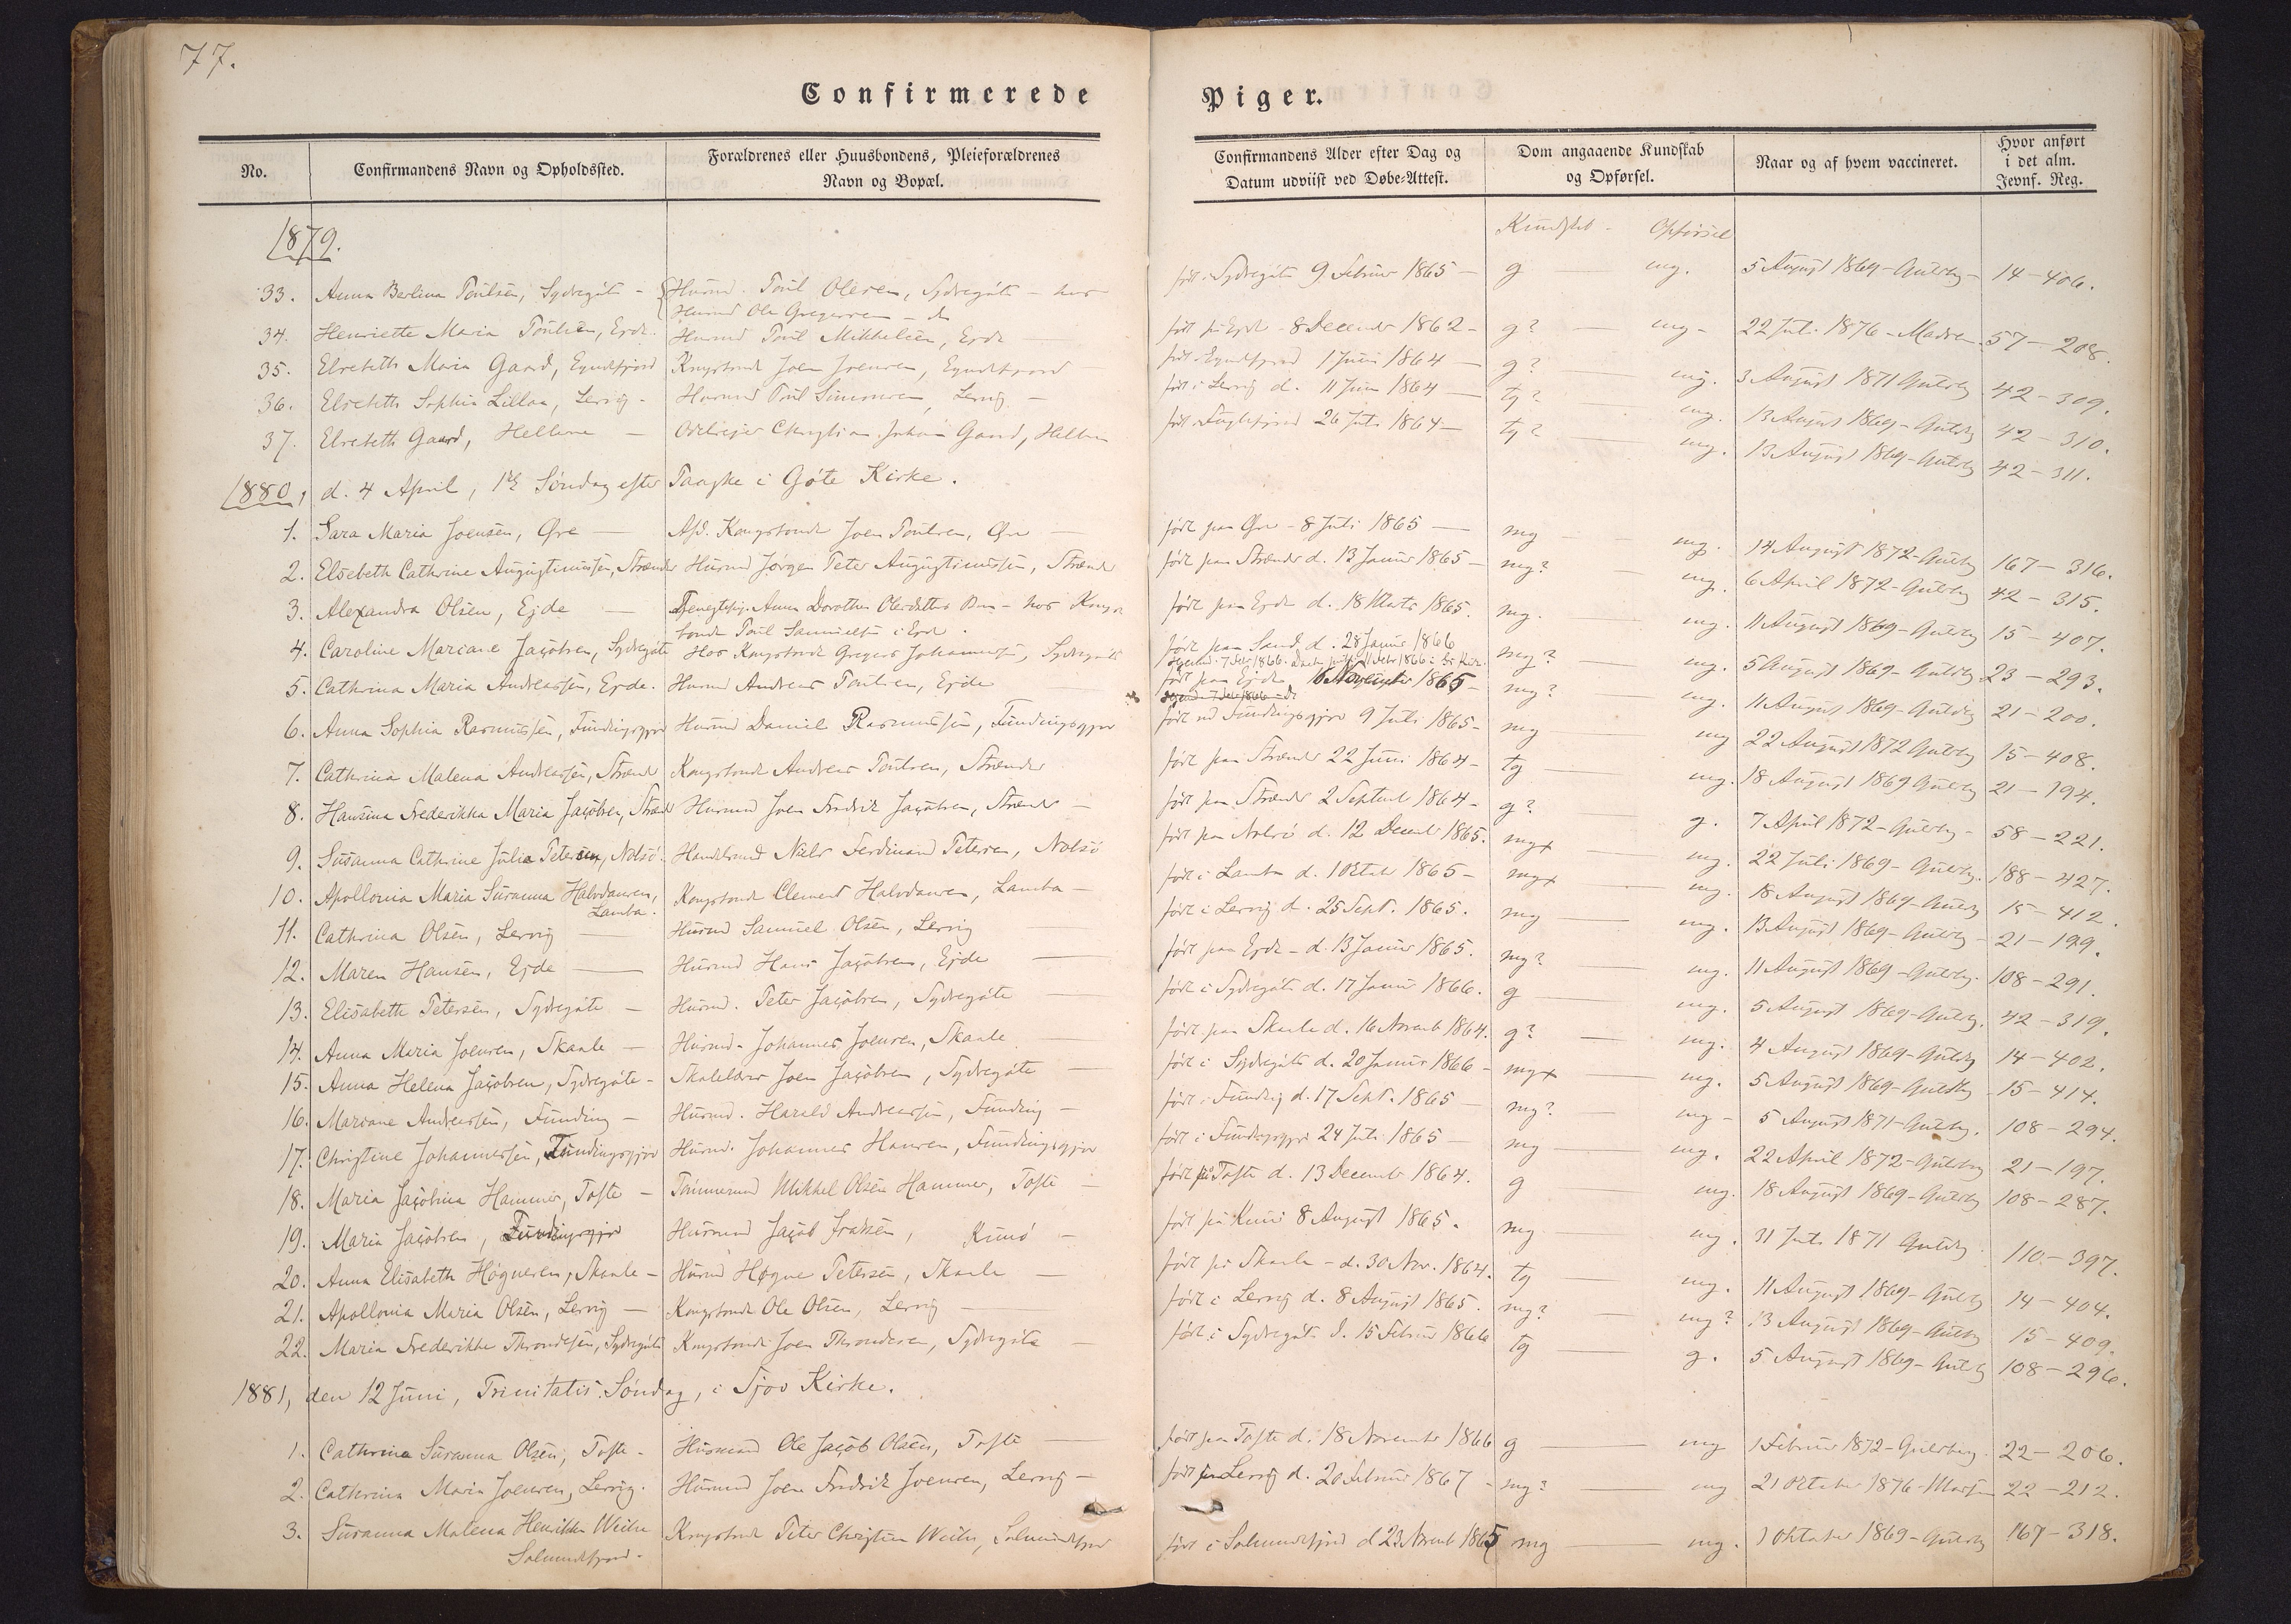 77.
Confirmerede Piger.
No. Confirmandens Navn og Opholdssted. Forældrenes eller Huusbondens, Pleieforældrenes Navn og Bopæl. Confirmandens Alder efter Dag og Datum udviist ved Døbe-Attest. Dom angaaende Kundskab og Opførsel. Naar og af hvem vaccineret. Hvor anført i det alm. Jevnf. Reg.
1879. Kundskab - Opførsel
33. Anna Berlina Poulsen, Sydregøte - Husmd. Poul Olesen, Sydregøte - hos født i Sydregøte 9 Februar 1865 - g - mg. 5 August 1869 - Guldbg - 14-406.
Husmd Ole Gregersen - ds
34. Henriette Maria Poulsen, Ejde. Husmd Poul Mikkelsen, Ejde født på Ejde - 8 December 1862 - g? - mg - 22 Juli 1876 - Madsen. 57-208.
35. Elsebeth Maria Gaard, Eyndefjord Kongsbonde Joen Joensen, Eyndefjord født i Eyndefjord 1 Juni 1864 - g? - mg. 3 August 1871 Guldbg 42-309.
36. Elsebeth Sophia Lillaa, Lervig - Husmd Poul Simonsen, Lervig - født i Lervig d. 11 Juni 1864 - tg? - mg. 13 August 1869 - Guldbg 42-310.
37. Elsebeth Gaard, Hellerne - Odelsejer Christian Johan Gaard, Hellerne født i Fuglefjord 26 Juli 1864 - tg? - mg. 13 August 1869 - Guldbg 42-311.
1880, d. 4 April, 1ste Søndag efter Paaske i Gøte Kirke.
1. Sara Maria Joensen, Øre - Afd. Kongsbonde Joen Poulsen, Øre - født paa Øre - 8 Juli 1865 - mg - mg. 14 August 1872 - Guldbg 167-316.
2. Elsebeth Cathrine Augustinussen, Strænder Husmd Jørgen Peter Augustinussen, Strænder født paa Strænder d. 13 Januar 1865 - mg? - mg. 6 April 1872 - Guldbg 42-315.
3. Alexandra Olsen, Ejde - Tjenestepige Anna Dorothea Olesdatters Barn - hos Kongs- født paa Ejde d. 18 Marts 1865. mg. - mg. 11 August 1869 - Guldbg 15-407.
bonde Poul Samuelsen i Ejde.
4. Caroline Mariane Jacobsen, Sydregøte Hos Kongsbonde Gregers Johannesen, Sydregøte født paa Sand d. 28 Januar 1866 mg? - mg. 5 August 1869 - Guldbg 23-293.
5. Cathrina Maria Andreassen, Ejde. Husmd Andreas Poulsen, Ejde født paa Ejde 16 November 1865 - mg? - mg. 11 August 1869 - Guldbg 21-200.
6. Anna Sophia Rasmussen, Fundingsgjov Husmd Daniel Rasmussen, Fundingsgjov født ved Fundingsgjov 9 Juli 1865 - mg - mg 22 August 1872 Guldbg 15-408.
7. Cathrina Malena Andreassen, Strænder Kongsbonde Andreas Poulsen, Strænder født paa Strænder 22 Juni 1864 - tg - mg. 18 August 1869 Guldbg 21-194.
8. Hansina Frederikka Maria Jacobsen, Strænder Husmd Joen Fredrik Jacobsen, Strænder - født paa Strænder 2 Septemb 1864 - g? - g. 7 April 1872 - Guldbg - 58-221.
9. Susanna Cathrine Julie Petersen, Nolsø. Handelsmd Niels Ferdinand Petersen, Nolsø født paa Nolsø d. 12 Decemb 1865. mg+ - mg. 22 Juli 1869 - Guldbg. 188-427.
10. Apollonia Maria Susanna Halvdansen, Kongsbonde Clement Halvdansen, Lamba - født i Lamba d. 1 Oktob 1865 - mg+ - mg. 18 August 1869 - Guldbg 15-412.
Lamba.
11. Cathrina Olsen, Lervig - Husmd Samuel Olsen, Lervig født i Lervig d. 25 Sept. 1865. mg - mg. 13 August 1869 - Guldbg - 21-199.
12. Maren Hansen, Ejde - Husmd Hans Jacobsen, Ejde - født paa Ejde - d. 13 Januar 1865. mg? - mg. 11 August 1869 - Guldbg. 108-291.
13. Elisabeth Petersen, Sydregøte - Husmd. Peter Jacobsen, Sydregøte - født i Sydregøte d. 17 Januar 1866. g - mg. 5 August 1869 - Guldbg. 42-319.
14. Anna Maria Joensen, Skaale - Husmd. Johannes Joensen, Skaale - født paa Skaale d. 16 Novemb 1864. g? - mg. 4 August 1869 - Guldbg 14-402.
15. Anna Helena Jacobsen, Sydregøte - Skolelærer Joen Jacobsen, Sydregøte - født i Sydregøte d. 20 Januar 1866 - mg+ - mg. 5 August 1869 - Guldbg 15-414.
16. Mariane Andreassen, Funding - Husmd. Harald Andreassen, Funding - født i Funding d. 17 Sept. 1865 - mg? - mg - 5 August 1871 - Guldbg. 108-294.
17. Christine Johannessen, Fundingsgjov Husmd. Johannes Hansen, Fundingsgjov født i Fundingsgjov 24 Juli 1865 - mg - mg. 22 April 1872 - Guldbg 21-197.
18. Maria Jacobina Hammer, Tofte - Tømmermd Mikkel Olsen Hammer, Tofte - født på Tofte d. 13 Decemb 1864. g mg. 18 August 1869 - Guldbg 108-287.
19. Maria Jacobsen, Fundingsgjov Husmand Jacob Isaksen, Kunø - født på Kunø 8 August 1865. mg - mg. 31 Juli 1871 Guldbg 110-397.
20. Anna Elisabeth Høgnesen, Skaale - Husmd Høgne Petersen, Skaale - født på Skaale - d. 30 Nov. 1864. tg mg. 11 August 1869 - Guldbg 14-404.
21. Apollonia Maria Olsen, Lervig - Kongsbonde Ole Olsen, Lervig født i Lervig d. 8 August 1865. mg? - mg? 13 August 1869 - Guldbg 15-409.
22. Maria Frederikke Throndesen, Sydregøte Kongsbonde Joen Throndesen, Sydregøte - født i Sydregøte d. 15 Februar 1866 tg - g. 5 August 1869 - Guldbg 108-296.
1881, den 12 Juni, Trinitatis Søndag, i Sjov Kirke.
1. Cathrine Susanna Olsen, Tofte - Husmand Ole Jacob Olsen, Tofte - født paa Tofte d. 18 November 1866 g - mg 1 Februar 1872 - Guldberg. 22-206.
2. Cathrina Maria Joensen, Lervig. Husmd Joen Fredrik Joensen, Lervig - født i Lervig d. 20 Februar 1867 - mg? - mg 21 Oktober 1876 - 22-212.
3. Susanna Malena Henrikka Weihe Kongsbonde Peter Christian Weihe, Solmundefjord født i Solmundefjord d 23 Novemb 1865 mg - mg. 1 Oktober 1869 - Guldbg 167-318.
Solmundefjord.